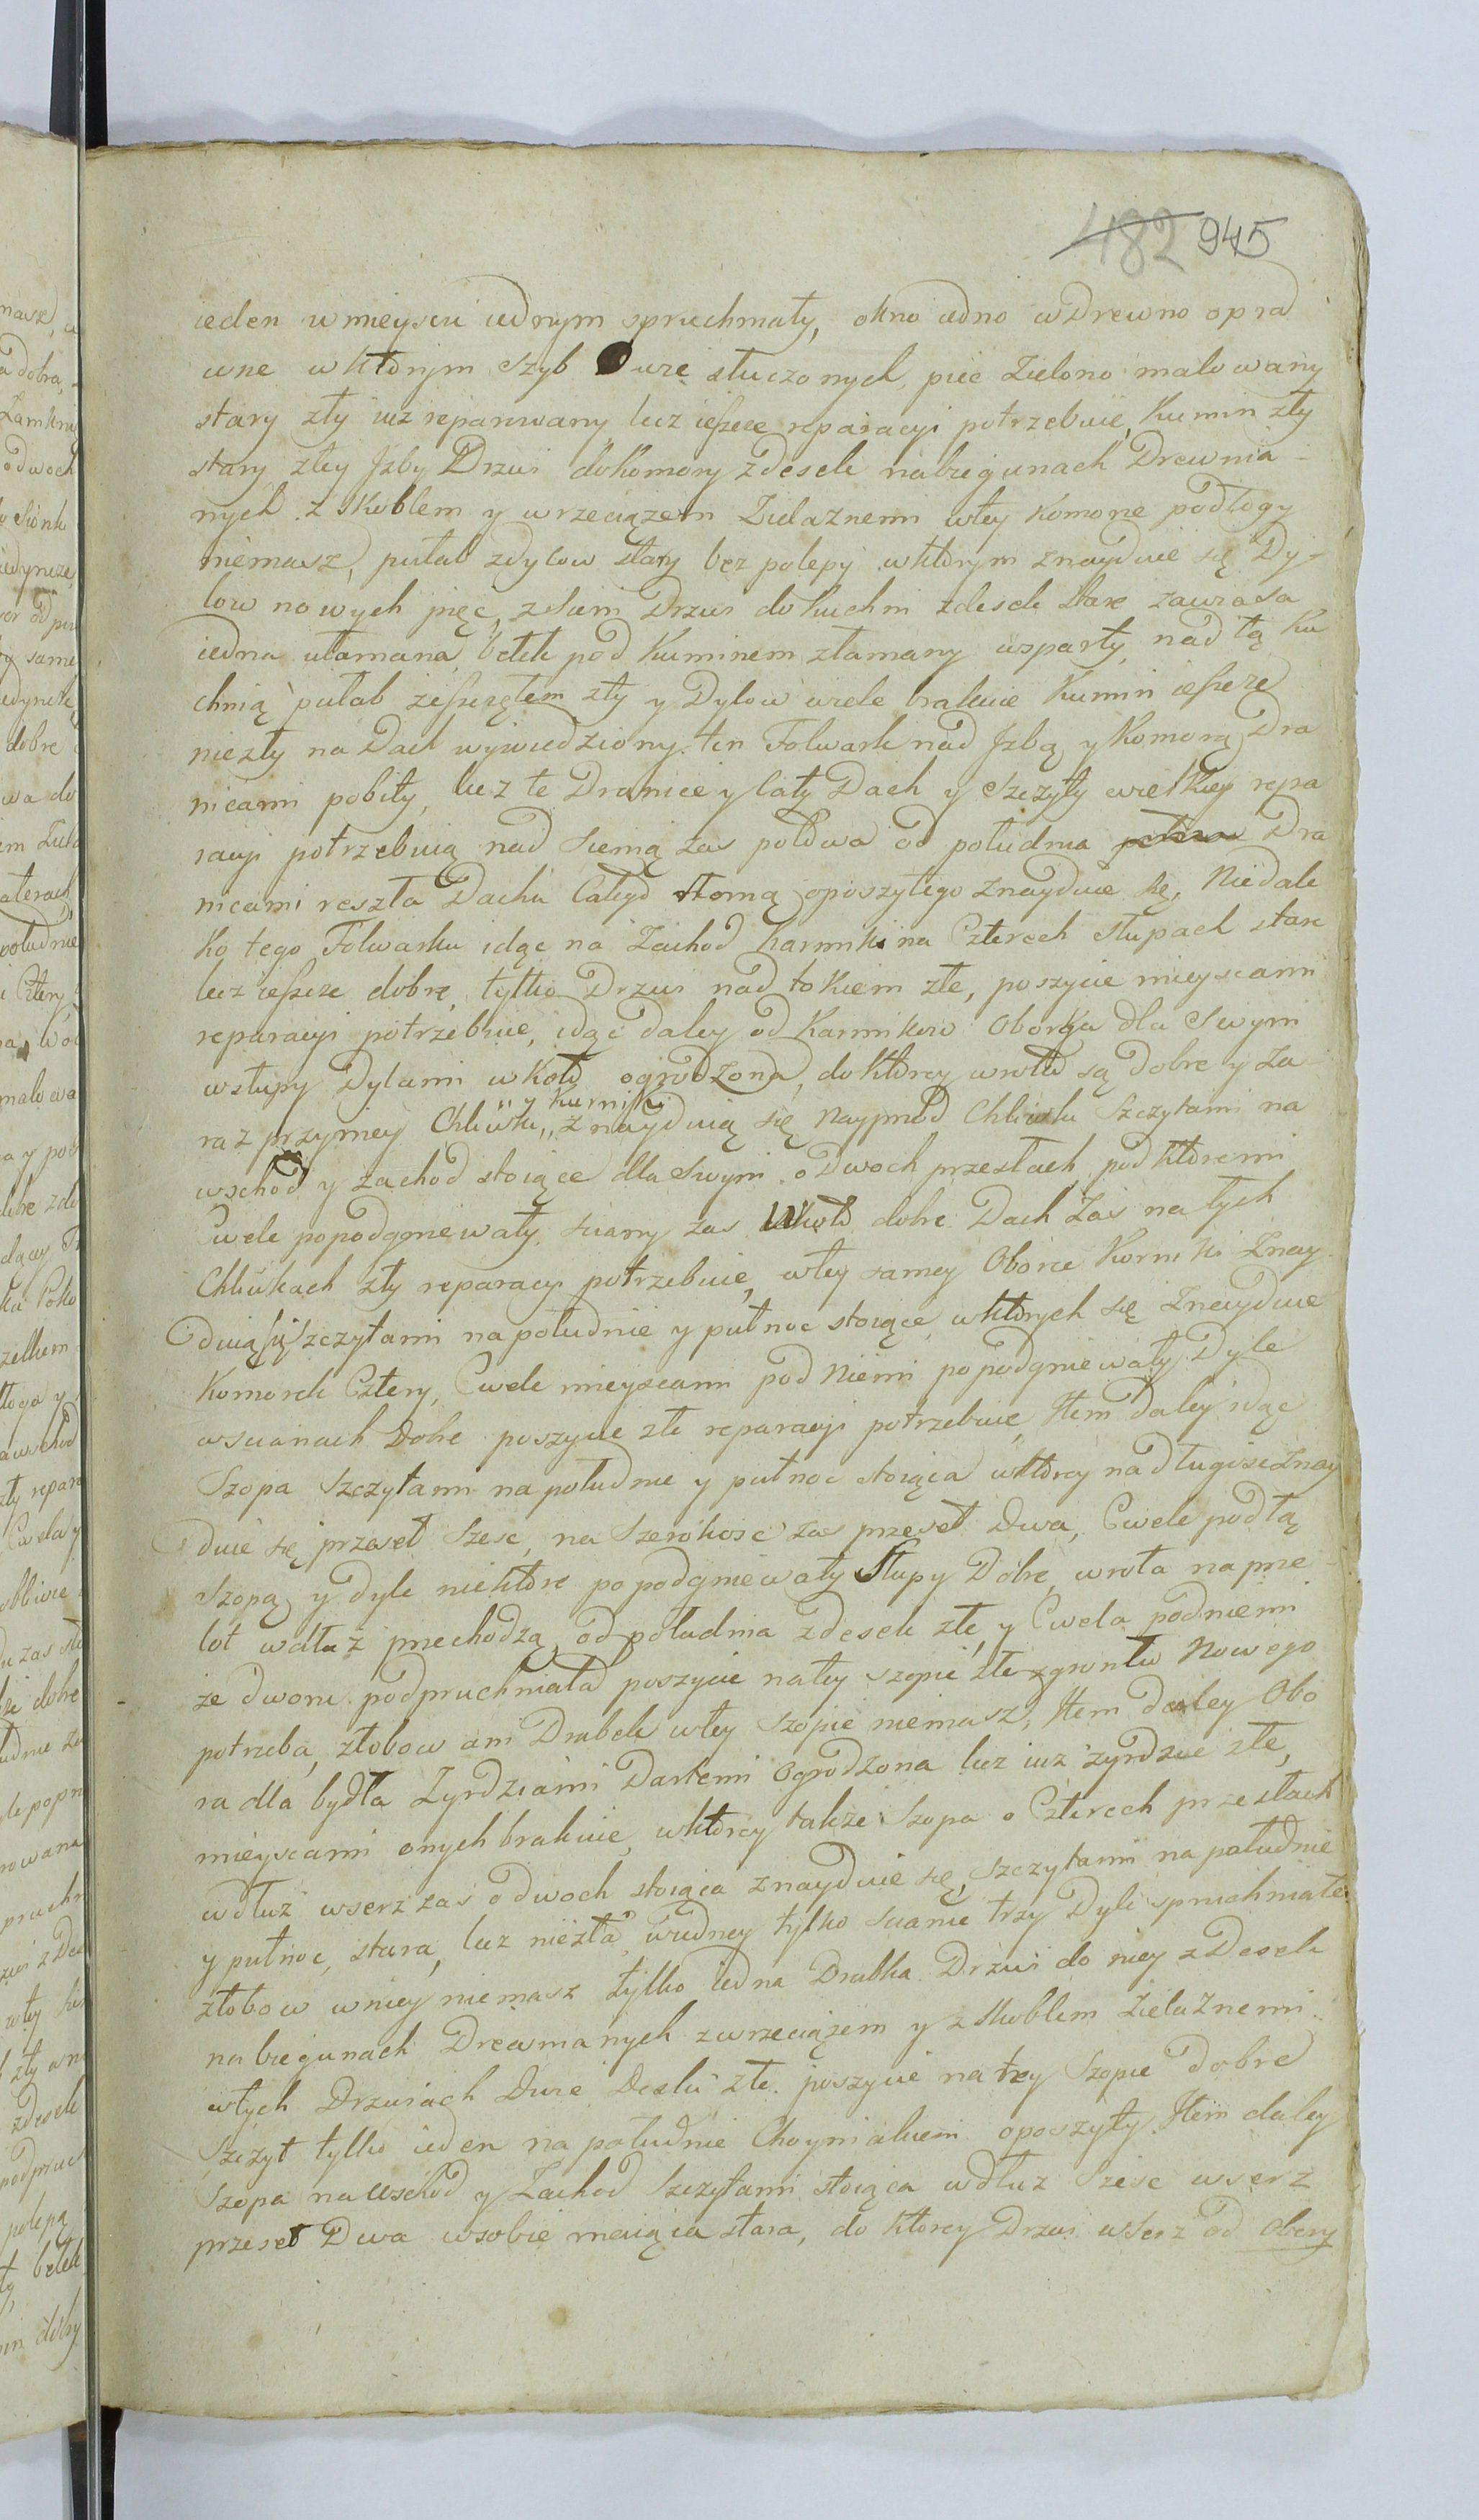 482 945
ieden w mieyscu iednym spruchniały, okno iedno w Drewno opra
wne w którym szyb Dwie stuczonych, piec Zielono malowany
stary zły iuż reparowany lecz ieszcze reparacyi potrzebuie, Kumin zły
stary z tey Izby Drzwi do Komory z desek na biegunach Drewnia-
nych z skoblem y wrzeciązem Zielaznemi w tey Komorze podłogy
niemasz, pułab z dylow stary bez polepy w ktorym znayduie się Dy-
low nowych pięc, z Sieni Drzwi do Kuchni z desek stare zawiasa
iedna ułamana, belek pod Kuminem złamany wsparty, nad tą Ku
chnią pułab ze szczętem zły y Dylow wiele brakuie Kumin ieszcze
niezły na Dach wywiedziony. ten Folwark nad Izbą y Komorą Dra
nicami pobity, lecz te Dranice y łaty Dach y szczyty wielkiey repa
racyi potrzebuią nad sienią zas połowa od południa Dra
nicami reszta Dachu Całego słomą oposzytego znayduie się, Niedale
ko tego Folwarku idąc na Zachod Karmik na Czterech słupach stare
lecz ieszcze dobre, tylko Drzwi nad tokiem złe, poszycie mieyscami
reparacyi potrzebuie, idąc daley od Karmikow Oborka dla Swyni
w słupy Dylami w koło ogrodzona, do ktorey wrota są Dobre y za
raz przy niey Chliwki, y Kurniki znayduią się Nayprzod Chliwki Szczytami na
wschod y zachod stoiące dla Swyni o Dwoch przesłach pod ktoremi
Cwele popodgniewały, sciany zas wkoło dobre Dach Zas na tych
Chliwkach zły reparacyi potrzebuie, w tey samey Oborce Kurniki Znay
duią się Szczytami na południe y pułnoc stoiące, w ktorych się Znayduie
Komorek Cztery, Cwele mieyscami pod Niemi popodgniewały Dyle
w scianach Dobre poszycie złe reparacyi potrzebuie, Item Daley idąc
Szopa Szczytami na południe y pułnoc stoiąca w ktorey na Długosc Znay
duie się przeseł Szesc, na Szerokosc zas przeseł Dwa, Cwele pod tą
Szopą y dyle niektore popodgniewały Słupy Dobre, wrota na prze-
lot wdłuż przechodzą, od południa z desek złe, y Cwela pod niemi
ze dworu podpruchniała poszycie na tey szopie złe z gruntu Nowego
potrzeba, złobow ani Drabek w tey Szopie niemasz, Item daley Obo
ra dla bydła Zyrdziami Dartemi Ogrodzona lecz iuz zyrdzie złe,
mieyscami onych brakuie, w ktorey takze Szopa o Czterech przesłach
wdłuż wszerz zas o dwoch stoiąca znayduie się, Szczytami na południe
y pułnoc, stara, lecz niezła, w iedney tylko scianie trzy Dyle spruchniałe
złobow w niey niemasz tylko iedna Drabka. Drzwi do niey z Desek
na biegunach Drewnianych z wrzeciązem y z skoblem Zielaznemi
w tych Drzwiach Dwie Deski złe. poszycie na tey Szopie Dobre
Szczyt tylko ieden na południe Choyniakiem oposzyty. Item daley
Szopa na wschod y Zachod Szczytami stoiąca wdłuz Szesc wserz
przeseł Dwa w sobie maiąca stara, do ktorey Drzwi wserz od Obory